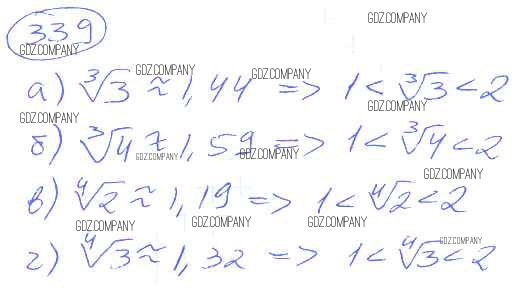 339
GDZ.COMPANY
GDZ.COMPANY
GDZ.COMPANY
GDZ.COMPANY
а) ∛3 ≈ 1,44 => 1 < ∛3 < 2
GDZ.COMPANY
GDZ.COMPANY
б) ∛4 ≈ 1,59 => 1 < ∛4 < 2
GDZ.COMPANY
GDZ.COMPANY
GDZ.COMPANY
в) ∜2 ≈ 1,19 => 1 < ∜2 < 2
GDZ.COMPANY
GDZ.COMPANY
GDZ.COMPANY
GDZ.COMPANY
г) ∜3 ≈ 1,32 => 1 < ∜3 < 2